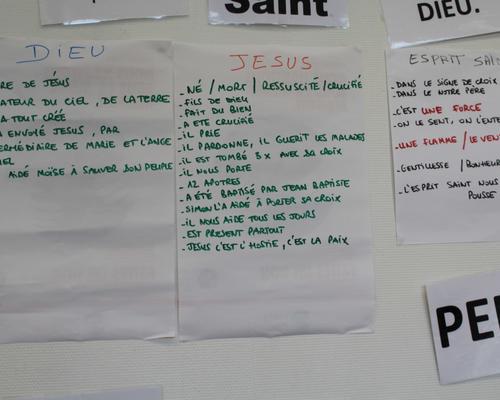 Saint
DIEU.
DIEU
RE DE JÉSUS
ATEUR DU CIEL, DE LA TERRE
A TOUT CRÉÉ
A ENVOYÉ JESUS, PAR
ERMÉDIAIRE DE MARIE ET L'ANGE
IEL
AIDÉ MOÏSE À SAUVER SON PEUPLE
JESUS
- NÉ / MORT / RESSUSCITÉ / CRUCIFIÉ
- FILS DE DIEU
- FAIT DU BIEN
- A ÉTÉ CRUCIFIÉ
- IL PRIE
- IL PARDONNE, IL GUERIT LES MALADES
- IL EST TOMBÉ 3X AVEC SA CROIX
- IL NOUS PORTE
- 12 APOTRES
- A ÉTÉ BAPTISÉ PAR JEAN BAPTISTE
- SIMON L'A AIDÉ À PORTER SA CROIX
- IL NOUS AIDE TOUS LES JOURS
- EST PRESENT PARTOUT
- JESUS C'EST L'HOSTIE, C'EST LA PAIX
ESPRIT SAIN
- DANS LE SIGNE DE CROIX
- DANS LE NOTRE PÈRE
- C'EST UNE FORCE
- ON LE SENT, ON L'ENTE
- UNE FLAMME / LE VENT
- GENTILLESSE / BONHEUR
- L'ESPRIT SAINT NOUS
POUSSE
PE